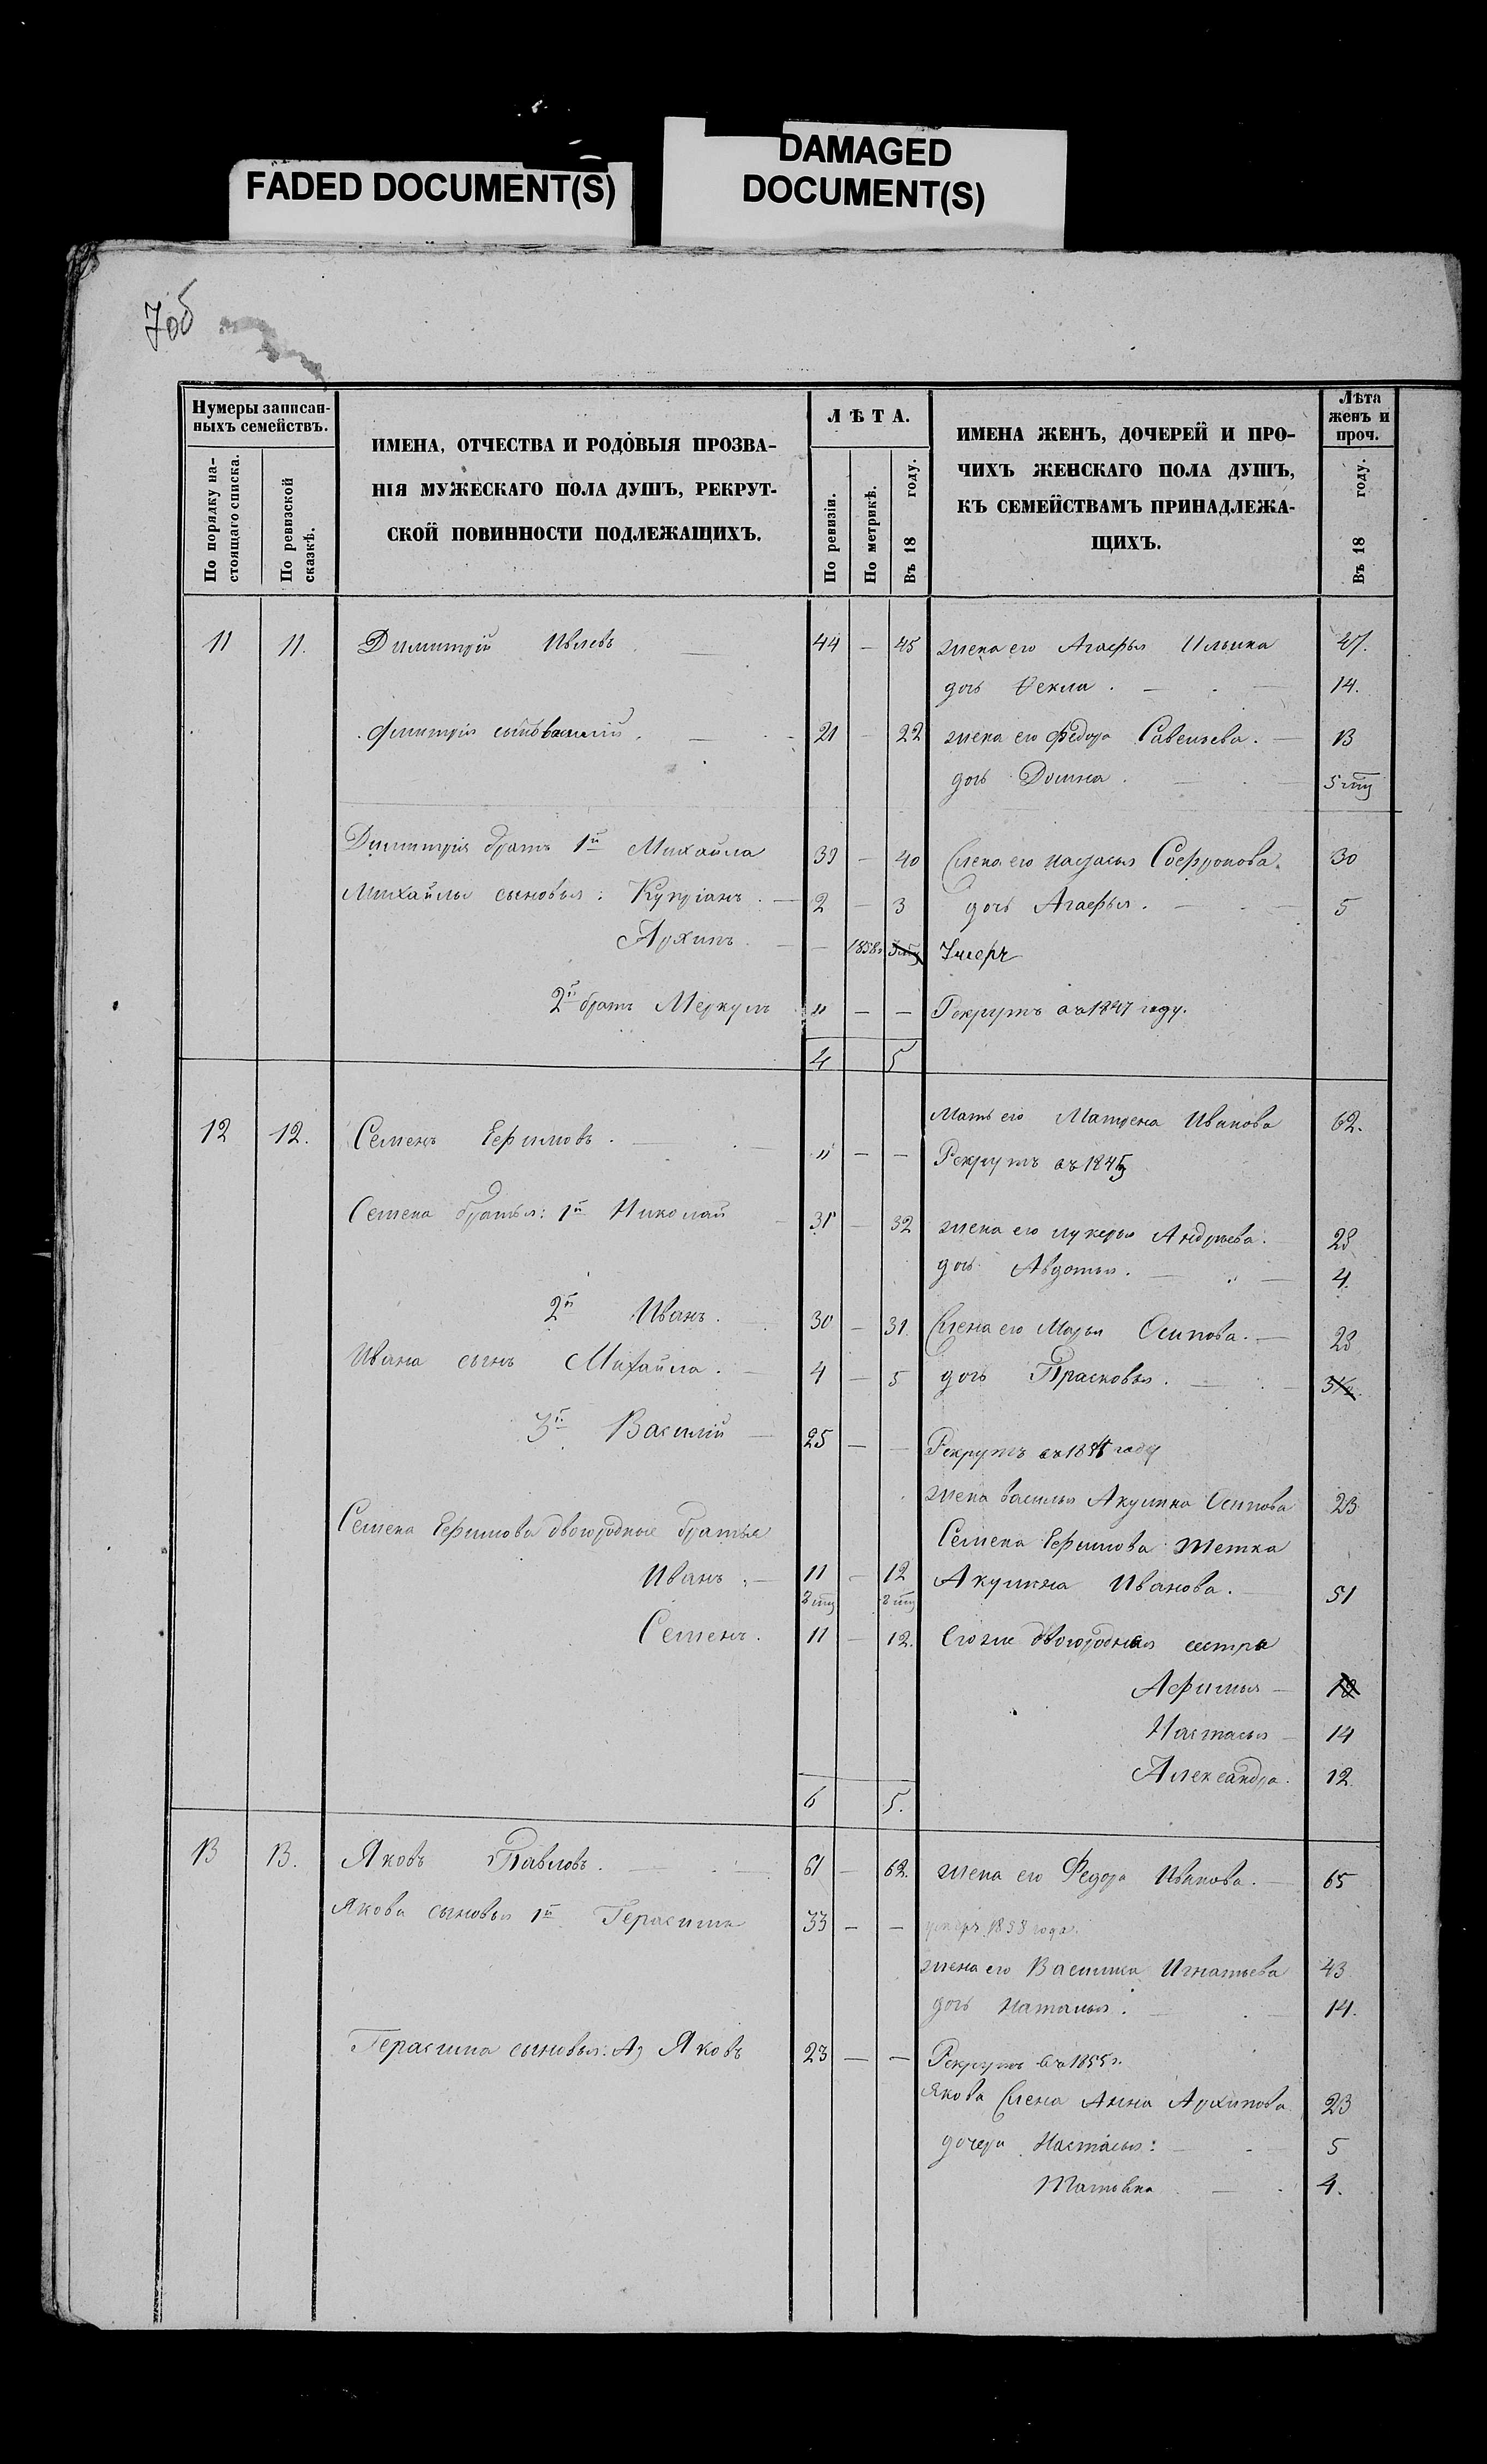 FADED DOCUMENT(S)
DAMAGED
DOCUMENT(S)
7об
Нумеры записан-
ныхъ семействъ.
По порядку на-
стоящаго списка.
По ревизской
сказкѣ.
ИМЕНА, ОТЧЕСТВА И РОДОВЫЯ ПРОЗВА-
НІЯ МУЖЕСКАГО ПОЛА ДУШЪ, РЕКРУТ-
СКОЙ ПОВИННОСТИ ПОДЛЕЖАЩИХЪ.
ЛѢТА.
По ревизіи.
По метрикѣ.
Въ 18 году.
ИМЕНА ЖЕНЪ, ДОЧЕРЕЙ И ПРО-
ЧИХЪ ЖЕНСКАГО ПОЛА ДУШЪ,
КЪ СЕМЕЙСТВАМЪ ПРИНАДЛЕЖА-
ЩИХЪ.
Лѣта
женъ и
проч.
Въ 18 году.
11 11. Димитрій Ивлевъ 44 — 45 жена его Агафья Ильина 47.
дочь Фекла. — 14.
Дмитрія сынъ Василій. — 21 — 22 жена его Федора Савельева. — 13
дочь Домна. — 5
Димитрія братъ 1й Михайла 39 — 40 Жена его Настасья Софронова. 30
Михайлы сыновья: Купріанъ. — 2 — 3 дочь Агафья. — 5
Архипъ. — — 1858 Умеръ
2й братъ Меркулъ " — — Рекрутъ въ 1847 году.
4 5
Мать его Матрена Иванова 62.
12 12. Семенъ Ефимовъ. — " — — Рекрутъ въ 1845
Семена братья: 1й Николай 31 — 32 жена его Лукерья Андреева. 28
дочь Авдотья. — 4.
2й Иванъ. 30 — 31. Жена его Марья Осипова. — 28
Ивана сынъ Михайла. — 4 — 5 дочь Прасковья. — 3½
3й Василій — 25 — — Рекрутъ въ году
жена Василья Акулина Осипова 23
Семена Ефимова двоюродные братья
Семена Ефимова тетка
Иванъ. — 11 — 12 Акулина Иванова. 51
Семенъ. 11 — 12. Его же двоюродная сестра
Афимья —
Настасья — 14
Александра. 12.
6 5.
13 13. Яковъ Павловъ. — 61 — 62. жена его Федора Иванова. — 65
Якова сыновья 1й Герасима 33 — — умеръ 1858 года.
жена его Василиса Игнатьева 43
дочь Наталья. — 14.
Герасима сыновья: А) Яковъ 23 — — Рекрутъ въ 1855 г.
Якова Жена Анна Архипова 23
дочери Настасья: — 5
Татьяна — 4.